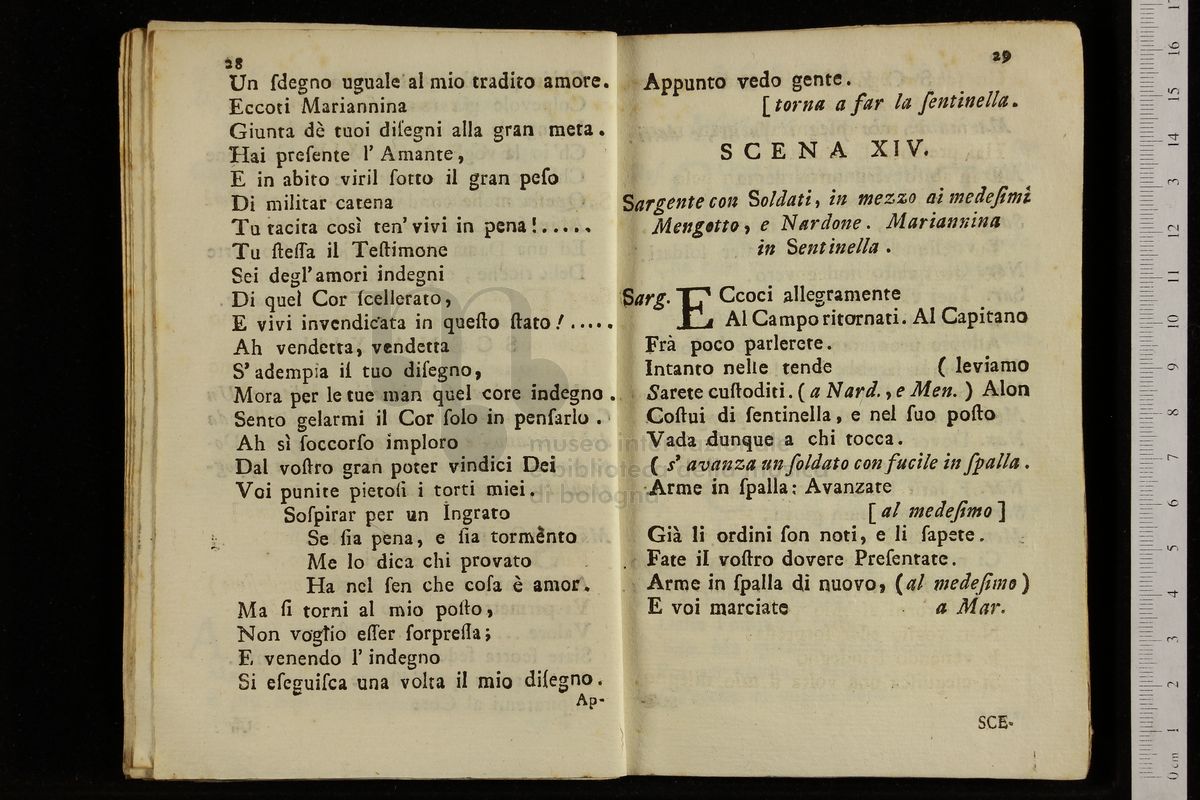 28
Un ſdegno uguale al mio tradito amore.
Eccoti Mariannina
Giunta dè tuoi diſegni alla gran meta.
Hai preſente l' Amante,
E in abito viril ſotto il gran peſo
Di militar catena
Tu tacita così ten' vivi in pena!.....
Tu ſteſſa il Teſtimone
Sei degl' amori indegni
Di quel Cor ſcellerato,
E vivi invendicata in queſto ſtato!.....
Ah vendetta, vendetta
S' adempia il tuo diſegno,
Mora per le tue man quel core indegno.
Sento gelarmi il Cor ſolo in penſarlo.
Ah sì ſoccorſo imploro
Dal voſtro gran poter vindici Dei
Voi punite pietoſi i torti miei.
Soſpirar per un Ingrato
Se ſia pena, e ſia tormento
Me lo dica chi provato
Ha nel ſen che coſa è amor.
Ma ſi torni al mio poſto,
Non voglio eſſer ſorpreſſa;
E venendo l' indegno
Si eſeguiſca una volta il mio diſegno.
Ap-
29
Appunto vedo gente.
[torna a far la ſentinella.
SCENA XIV.
Sargente con Soldati, in mezzo ai medeſimi
Mengotto, e Nardone. Mariannina
in Sentinella.
Sarg. ECcoci allegramente
Al Campo ritornati. Al Capitano
Frà poco parlerete.
Intanto nelle tende ( leviamo
Sarete cuſtoditi. (a Nard., e Men.) Alon
Coſtui di ſentinella, e nel ſuo poſto
Vada dunque a chi tocca.
( s' avanza un ſoldato con fucile in ſpalla.
Arme in ſpalla: Avanzate
[al medeſimo]
Già li ordini ſon noti, e li ſapete.
Fate il voſtro dovere Preſentate.
Arme in ſpalla di nuovo, (al medeſimo)
E voi marciate a Mar.
SCE-
museo internazionale
biblioteca della musica
di bologna
0 cm 1 2 3 4 5 6 7 8 9 10 11 12 13 14 15 16